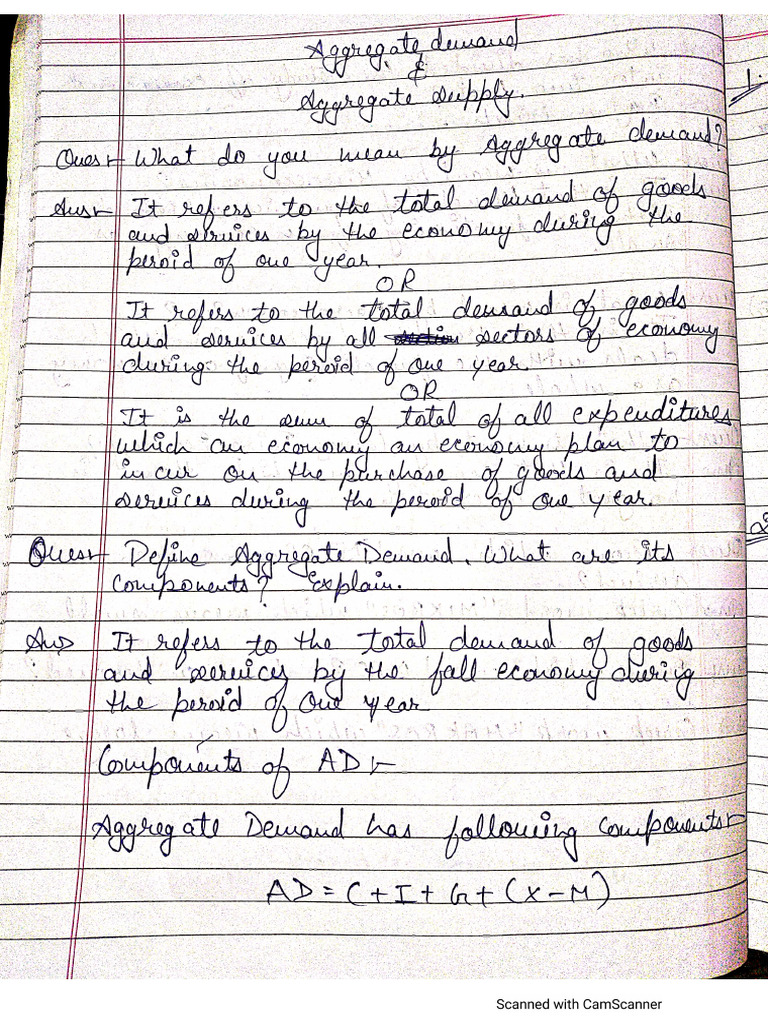 Aggregate demand
&
Aggregate Supply.
1.
Ques:- What do you mean by Aggregate demand?
Ans:- It refers to the total demand of goods
and services by the economy during the
peroid of one year.
OR
It refers to the total demand of goods
and services by all sectors of economy
during the peroid of one year.
OR
It is the sum of total of all expenditures
which an economy an economy plan to
incur on the purchase of goods and
services during the peroid of one year.
Ques:- Define Aggregate Demand. What are its
components? Explain.
Ans It refers to the total demand of goods
and services by the fall economy during
the peroid of one year
Components of AD:-
Aggregate Demand has following components:-
AD = C + I + G + (X - M)
Scanned with CamScanner